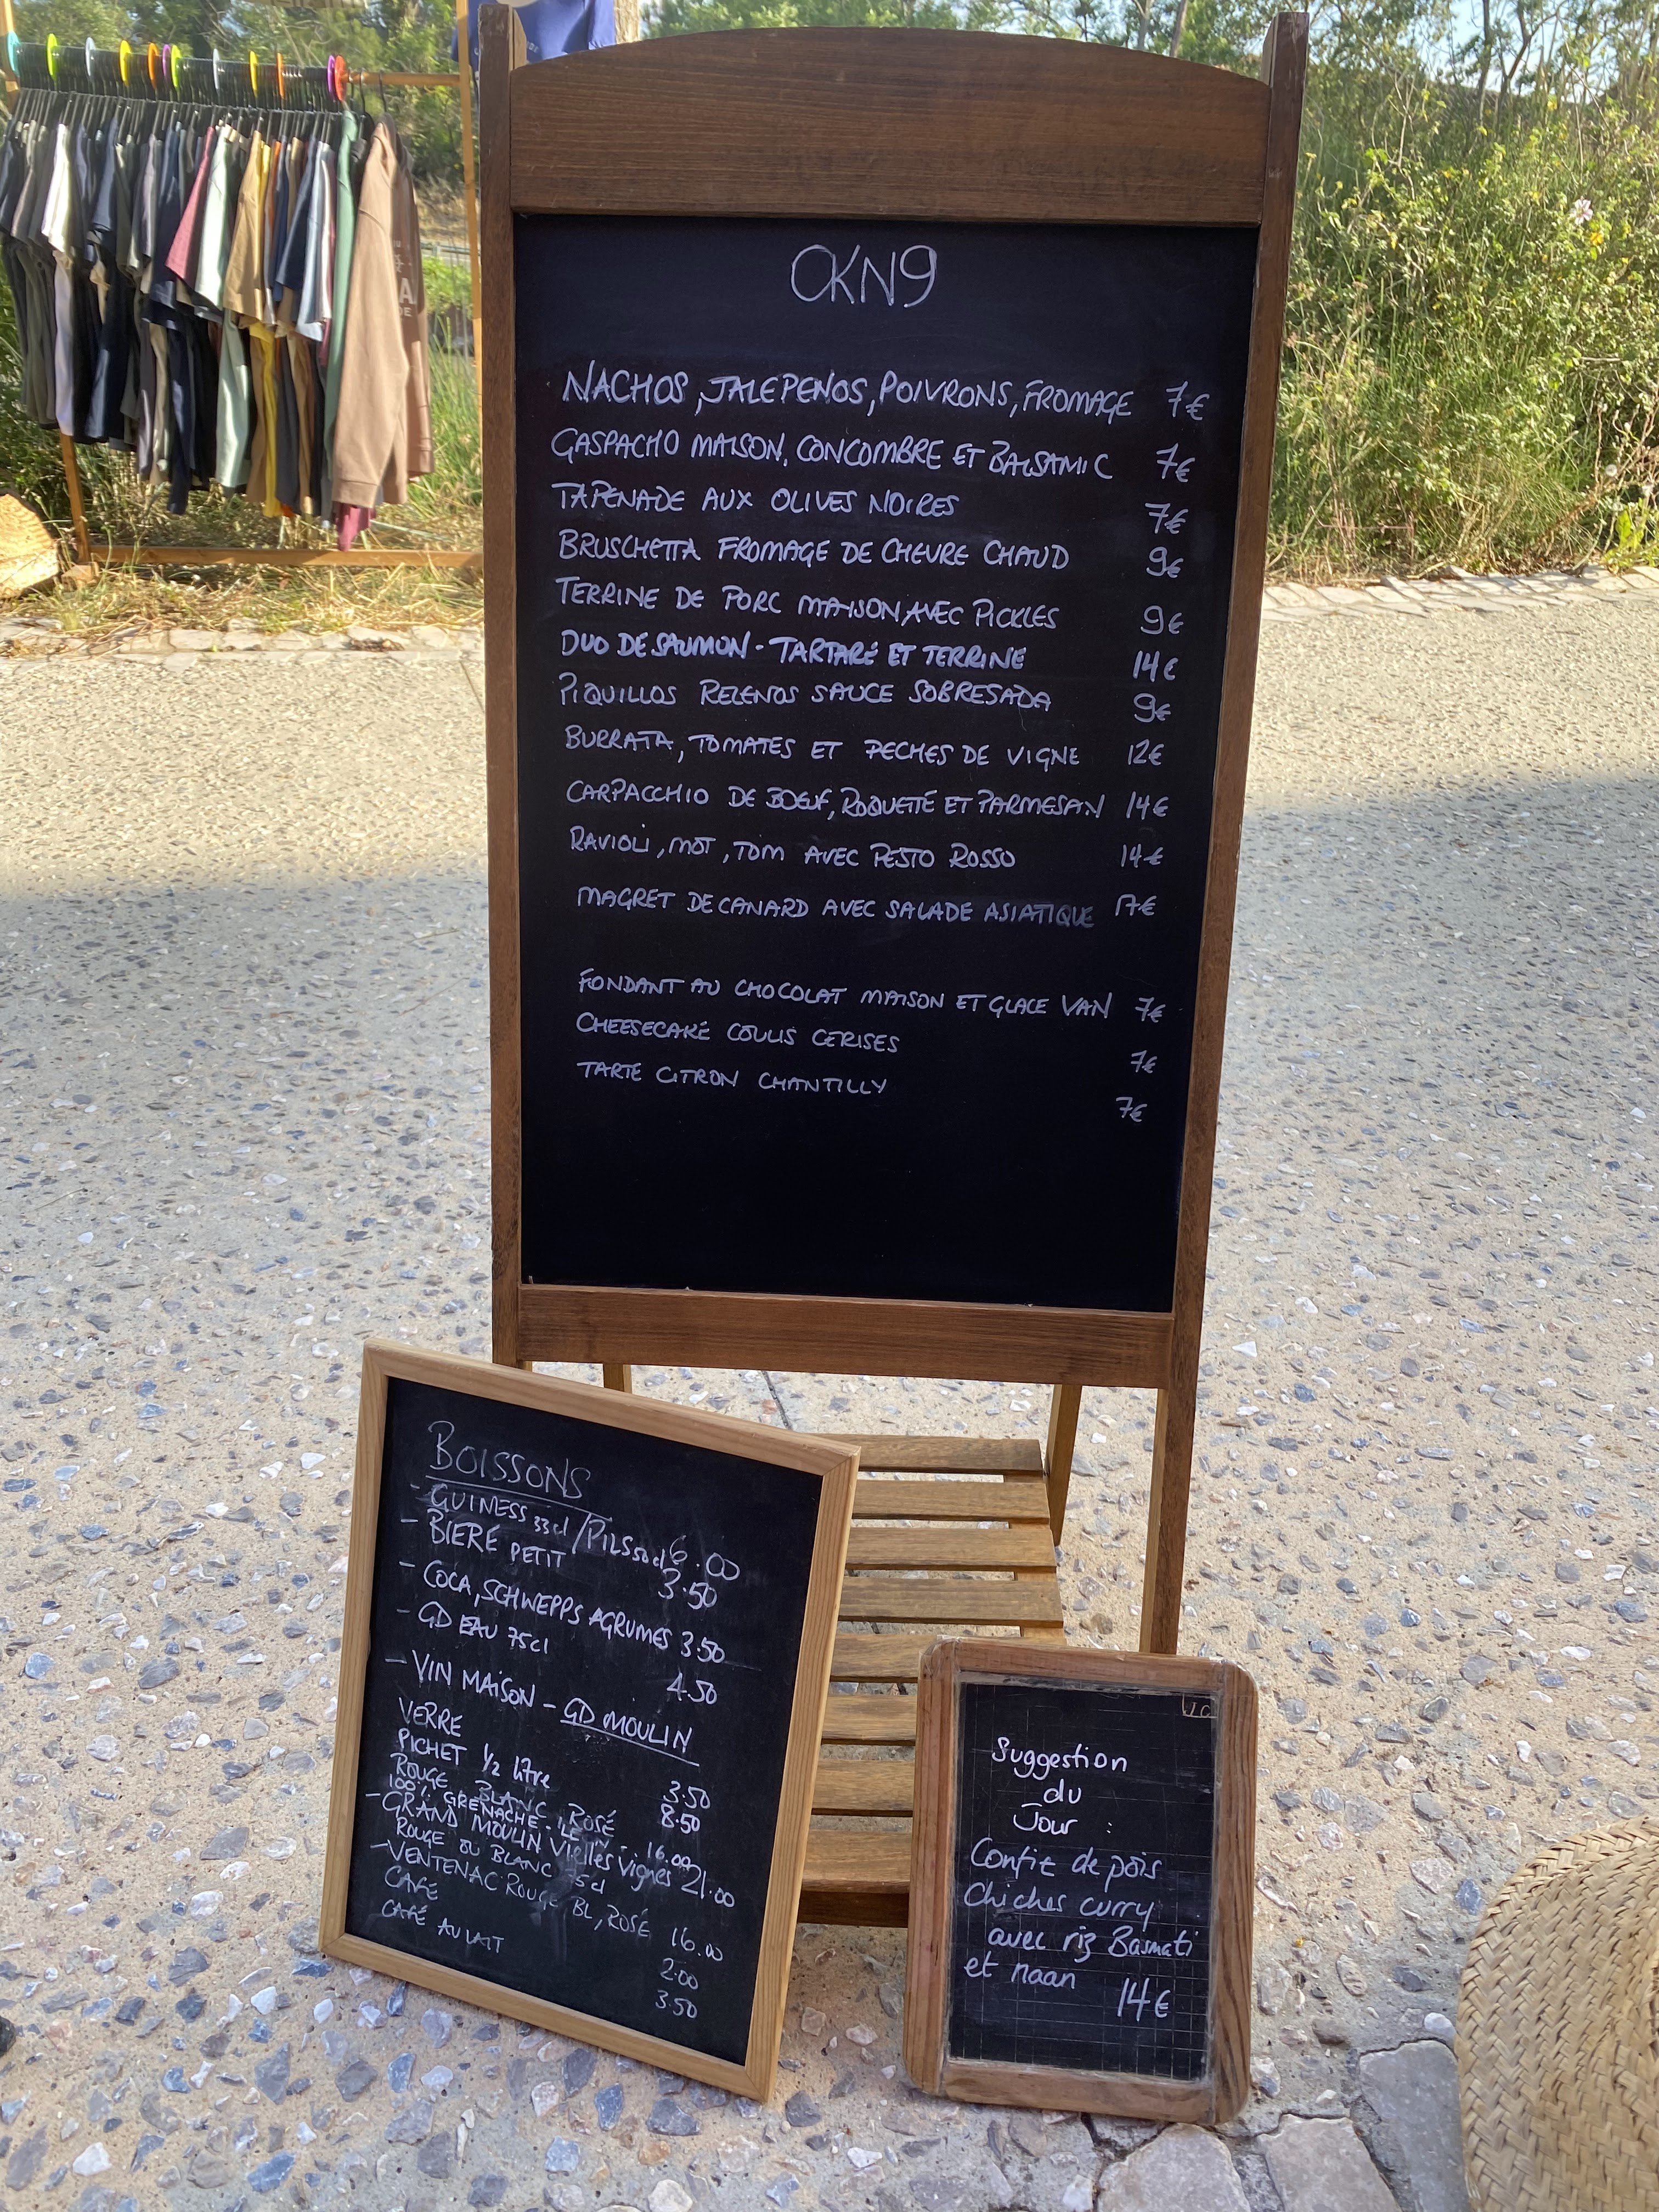 CKN9
NACHOS, JALEPENOS, POIVRONS, FROMAGE 7€
GASPACHO MAISON, CONCOMBRE ET BALSAMIC 7€
TAPENADE AUX OLIVES NOIRES 7€
BRUSCHETTA FROMAGE DE CHEVRE CHAUD 9€
TERRINE DE PORC MAISON AVEC PICKLES 9€
DUO DE SAUMON - TARTARE ET TERRINE 14€
PIQUILLOS RELENOS SAUCE SOBRESADA 9€
BURRATA, TOMATES ET PECHES DE VIGNE 12€
CARPACCHIO DE BOEUF, ROQUETTE ET PARMESAN 14€
RAVIOLI, MOT, TOM AVEC PESTO ROSSO 14€
MAGRET DE CANARD AVEC SALADE ASIATIQUE 17€
FONDANT AU CHOCOLAT MAISON ET GLACE VAN 7€
CHEESECAKE COULIS CERISES 7€
TARTE CITRON CHANTILLY 7€
BOISSONS
- GUINESS 33cl / PILS 50cl 6.00
- BIERE PETIT 3.50
- COCA, SCHWEPPS AGRUMES 3.50
- GD EAU 75cl 4.50
- VIN MAISON - GD MOULIN
VERRE 3.50
PICHET 1/2 litre 8.50
ROUGE BLANC ROSÉ
100% GRENACHE 16.00
- GRAND MOULIN Vielles Vignes 21.00
ROUGE OU BLANC 75cl
- VENTENAC ROUGE, BL, ROSÉ 16.00
CAFÉ 2.00
CAFÉ AU LAIT 3.50
Suggestion
du
Jour :
Confit de pois
chiches curry
avec riz Basmati
et naan 14€